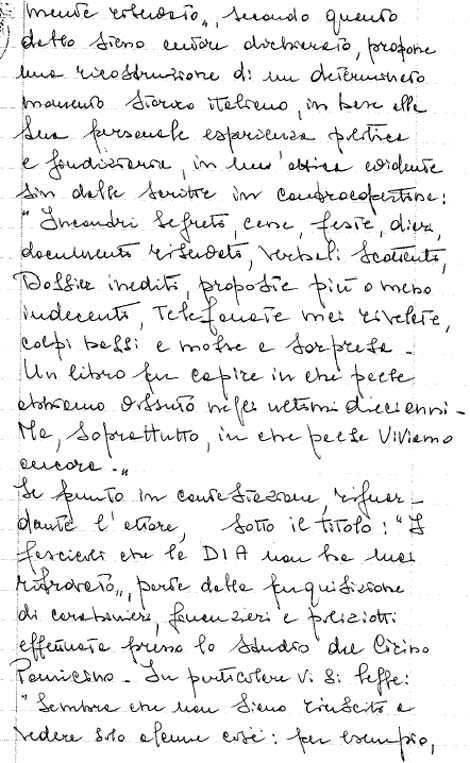 mente riservato", secondo quanto
dallo stesso autore dichiarato, propone
una ricostruzione di un determinato
momento storico italiano, in base alla
sua personale esperienza politica
e giudiziaria, in un'ottica evidente
sin dalle scritte in controcopertina:
"Incontri segreti, cene, feste, diari,
documenti riservati, verbali scottanti,
Dossier inediti, proposte più o meno
indecenti, telefonate mai rivelate,
colpi bassi e mosse a sorpresa -
Un libro per capire in che paese
abbiamo vissuto negli ultimi dieci anni -
Ma, soprattutto, in che paese viviamo
ancora -"
Il punto in contestazione, riguar-
dante l'attore, sotto il titolo: "I
fascicoli che la DIA non ha mai
ritrovato", parla della perquisizione
di carabinieri, finanzieri e poliziotti
effettuata presso lo studio del
In particolare vi si legge:
"Sembra che non siano riusciti a
vedere solo alcune cose: per esempio,